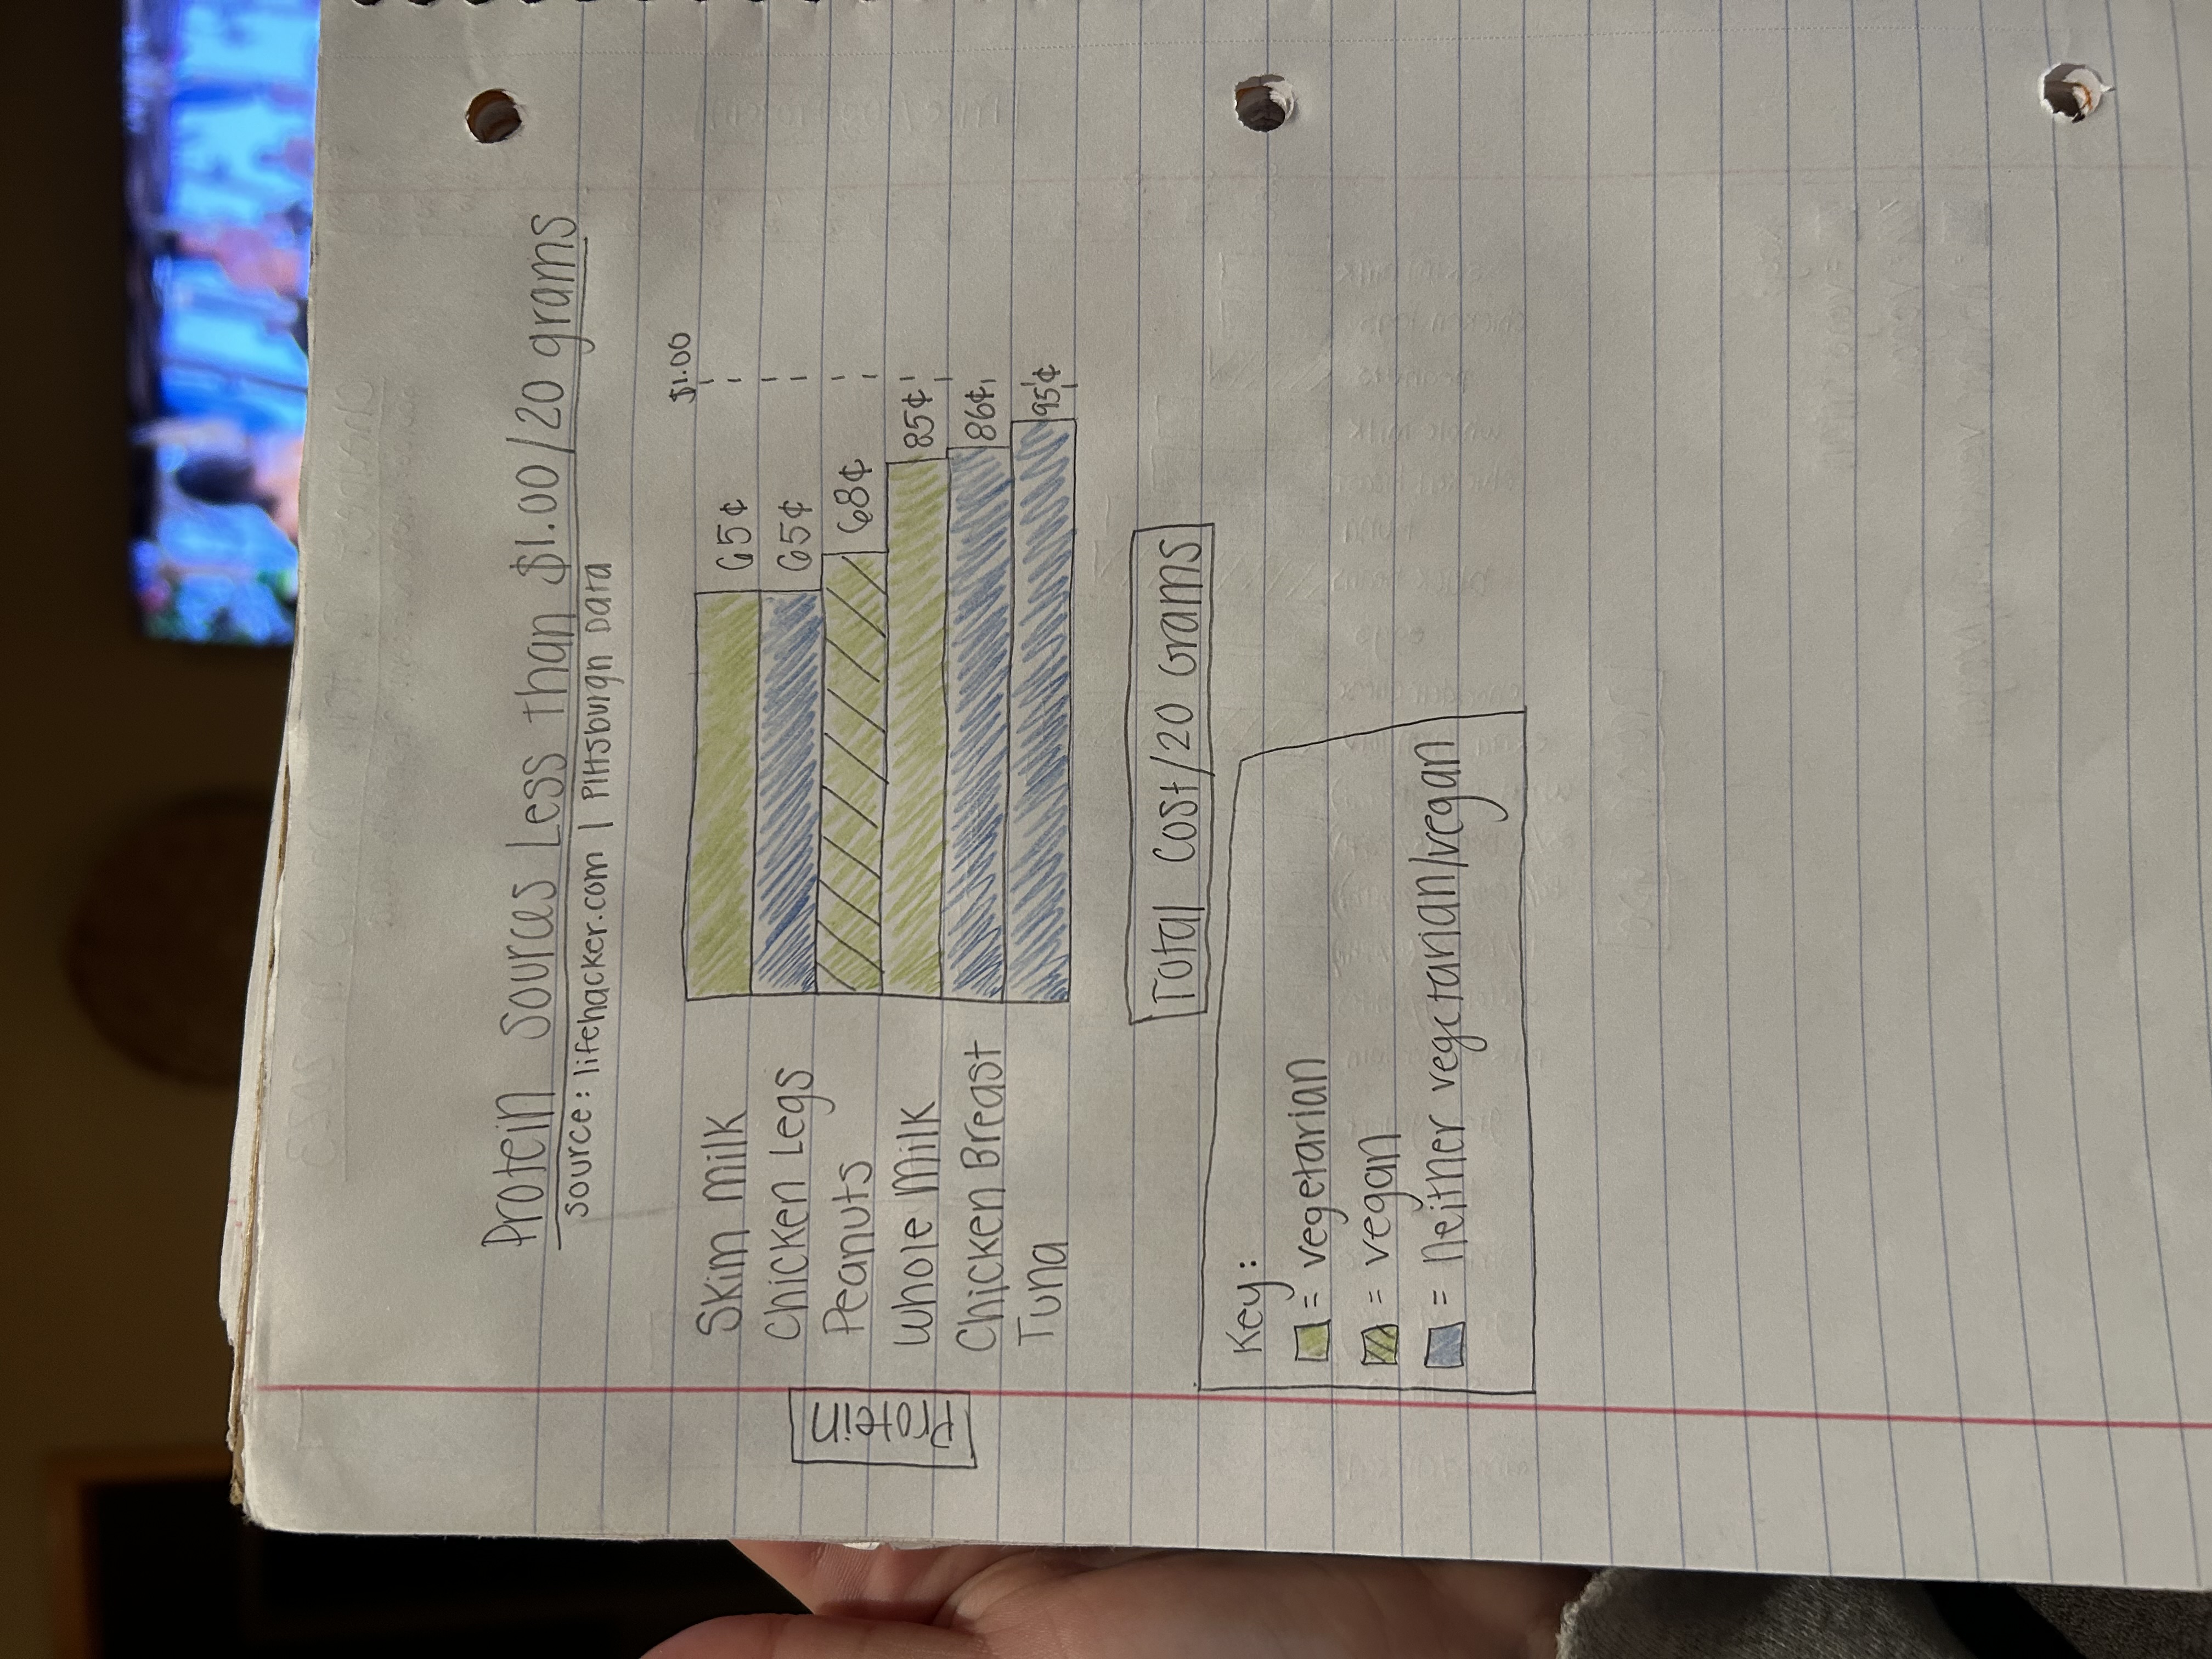 Protein Sources Less Than $1.00/20 grams
source: lifehacker.com | Pittsburgh Data
$1.00
Skim Milk 65¢
Chicken Legs 65¢
Peanuts 68¢
Whole Milk 85¢
Chicken Breast 86¢
Tuna 95¢
Protein
Total Cost/20 Grams
Key:
= vegetarian
= vegan
= neither vegetarian/vegan